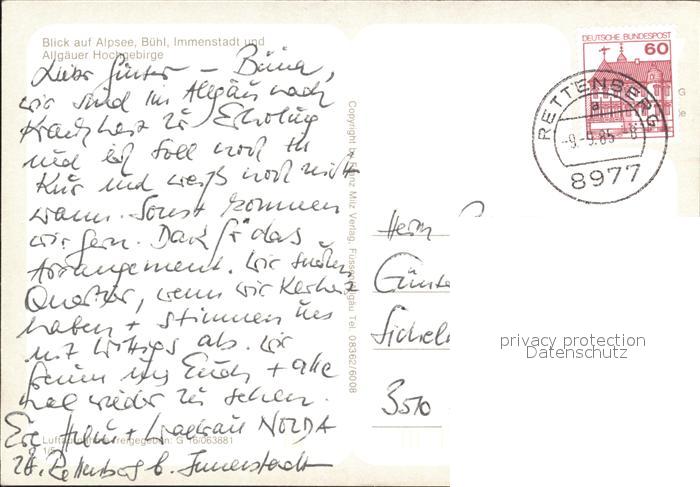 Blick auf Alpsee, Bühl, Immenstadt und
Allgäuer Hochgebirge
Lieber Günter -
wir sind im Allgäu nach
Krankheit zu Erholung
und ich soll noch in
Kur und weiß noch nicht
wann. Sonst kommen
wir gern. Dank für das
Arrangement. Wir suchen
Quartier, wenn wir
haben + stimmen uns
mit ab. Wir
freuen uns Euch + alle
mal wieder zu sehen.
+ NOLDA
Luftaufnahme freigegeben: G 16/063881
Rettenberg b. Immenstadt
Copyright by Franz Milz Verlag, Fussen/Allgäu Tel. 08362/6008
DEUTSCHE BUNDESPOST
60
RETTENBERG
a
-9.-9.85-8
8977
Herrn
Günte
Sichel
3510
privacy protection
Datenschutz